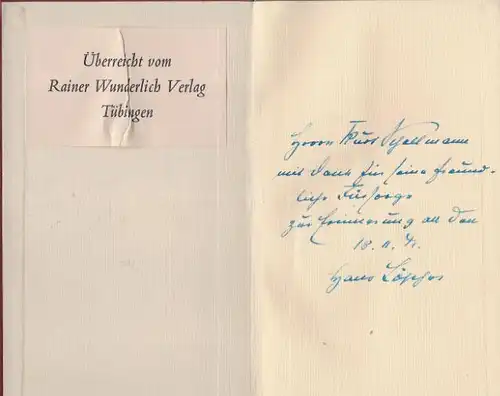 Überreicht vom
Rainer Wunderlich Verlag
Tübingen
Herrn Kurt Schallmann
mit Dank für seine freund-
liche Fürsorge
zur Erinnerung an den
18. 11. 41.
Hans